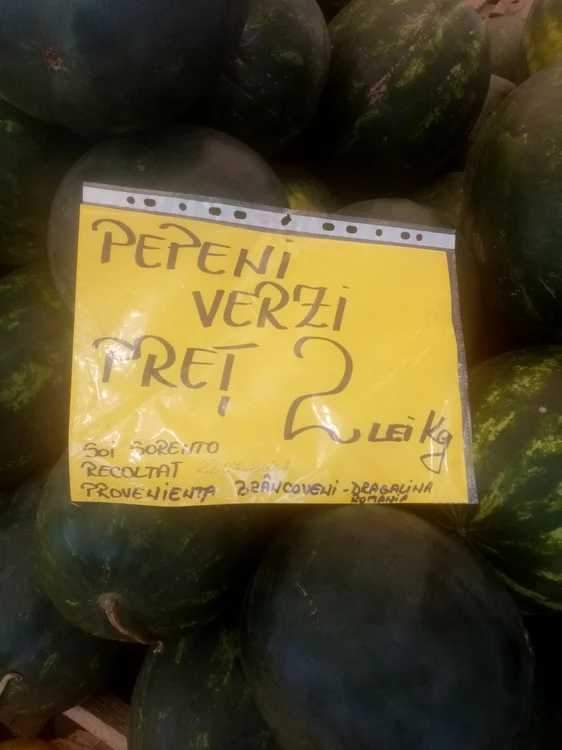 PEPENI
VERZI
PREȚ 2 LEI Kg
SOI SORENTO
RECOLTAT
PROVENIENȚA BRÂNCOVENI - DRAGALINA
ROMANIA